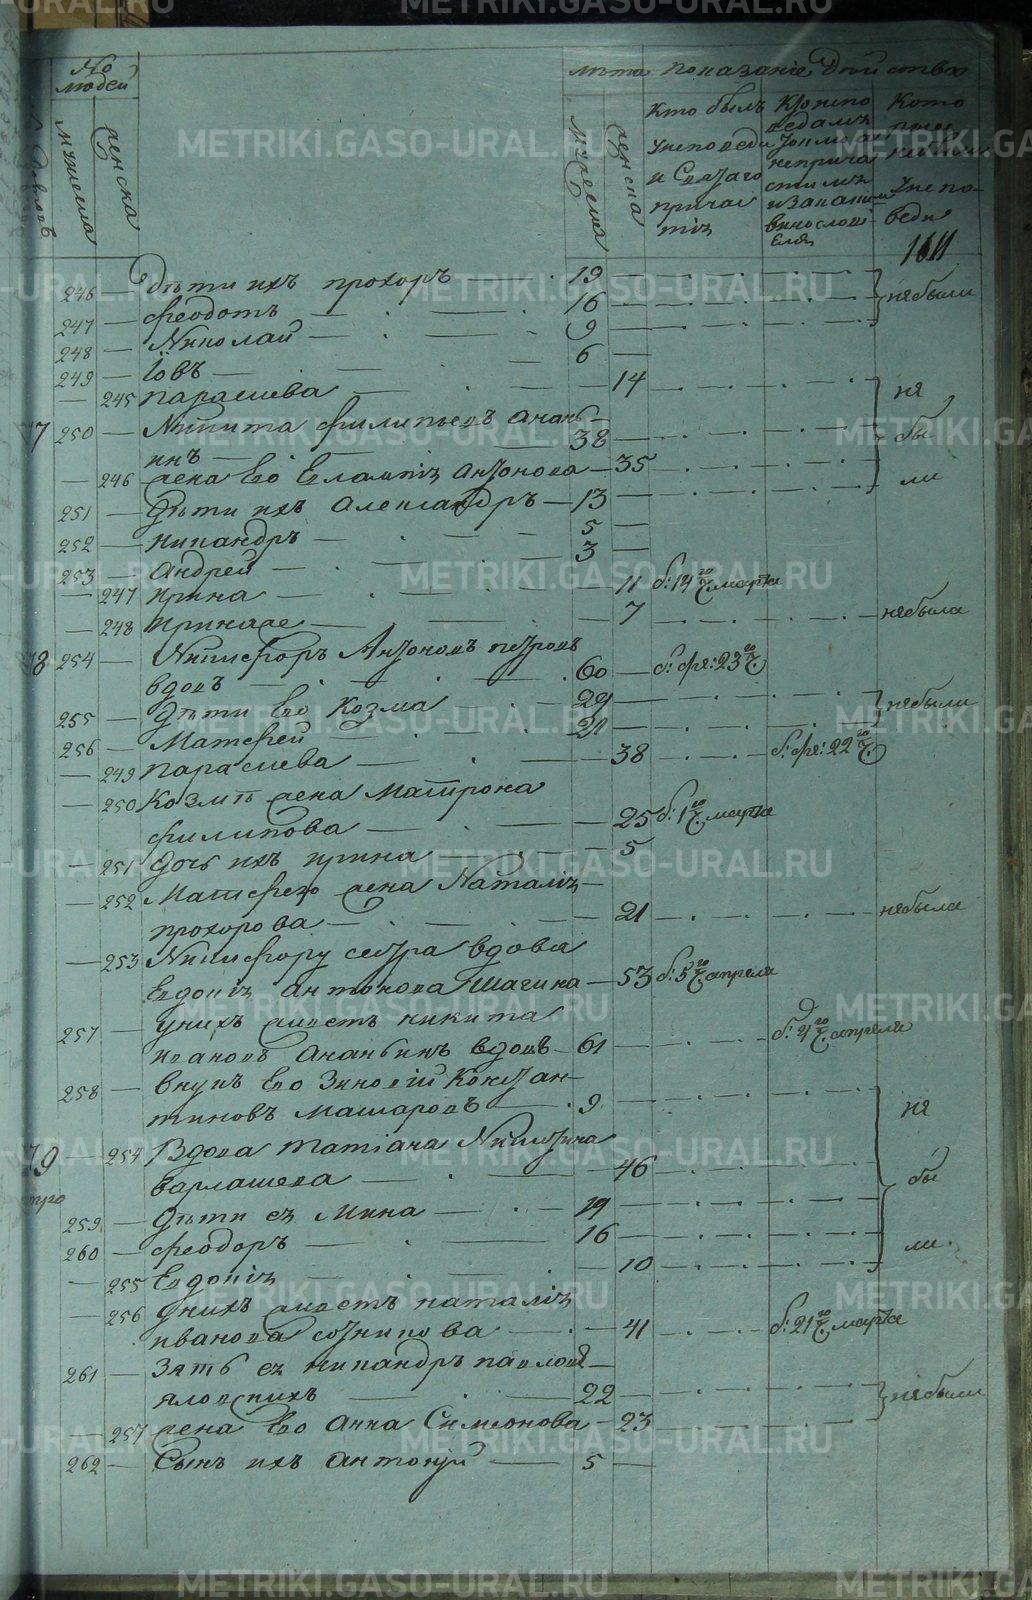 Но людей
Лѣта Показанiе Дѣйствъ
мужеска
женска
мужеска
женска
Кто былъ у исповеди и святаго причастiя
Кто исповедался токмо а не причастился и за каким винословiем
Которые не были у исповеди
1611
246 — Дѣти ихъ прохоръ 19
247 — феодотъ 16 небыли
248 — Николай 9
249 — Iовъ 6
— 245 параскева — 14
77 250 — Никита филиповъ Анань-
инъ — 38 не
— 246 жена Его Евлампiя антонова — 35 бы
251 — Дѣти ихъ Александръ — 13 ли
252 — никандръ 5
253 — Андрей 3
— 247 ирина — 11 б: 14го Ч. марта
— 248 7 небыла
78 254 — Никифоръ Антоновъ петровъ
вдовъ 60 — б: фев: 23го Ч.
255 — Дѣти Его Козма 29 небыли
256 — Матфей 21
— 249 параскева — 38 б: фев: 22го Ч.
— 250 Козмы жена Матрона
филипова — 25 б: 1го Ч. марта
— 251 дочь ихъ ирина — 5
— 252 Матфею жена Наталiя
прохорова — 21 небыла
— 253 Никифору сестра вдова
Евдокiя антонова Шагина — 53 б: 5го Ч. апреля
257 — у нихъ живетъ никита
ивановъ Ананьинъ вдовъ — 61 б: 4го Ч. апреля
258 — внукъ Его Зиновiй Констан-
тиновъ Макаровъ 9 не
79 — 254 Вдова татiана Никитина
варлашева — 46 бы
259 — Дѣти ея Мина — 19
260 — феодоръ 16 ли
— 255 Евдокiя — 10
— 256 у нихъ живетъ наталiя
иванова сотникова — 41 б: 21го Ч. марта
261 — Зять ея никандръ павловъ
яловскихъ 22 небыли
— 257 жена Его Анна Симеонова — 23
262 — Сынъ ихъ антонiй 5
METRIKI.GASO-URAL.RU